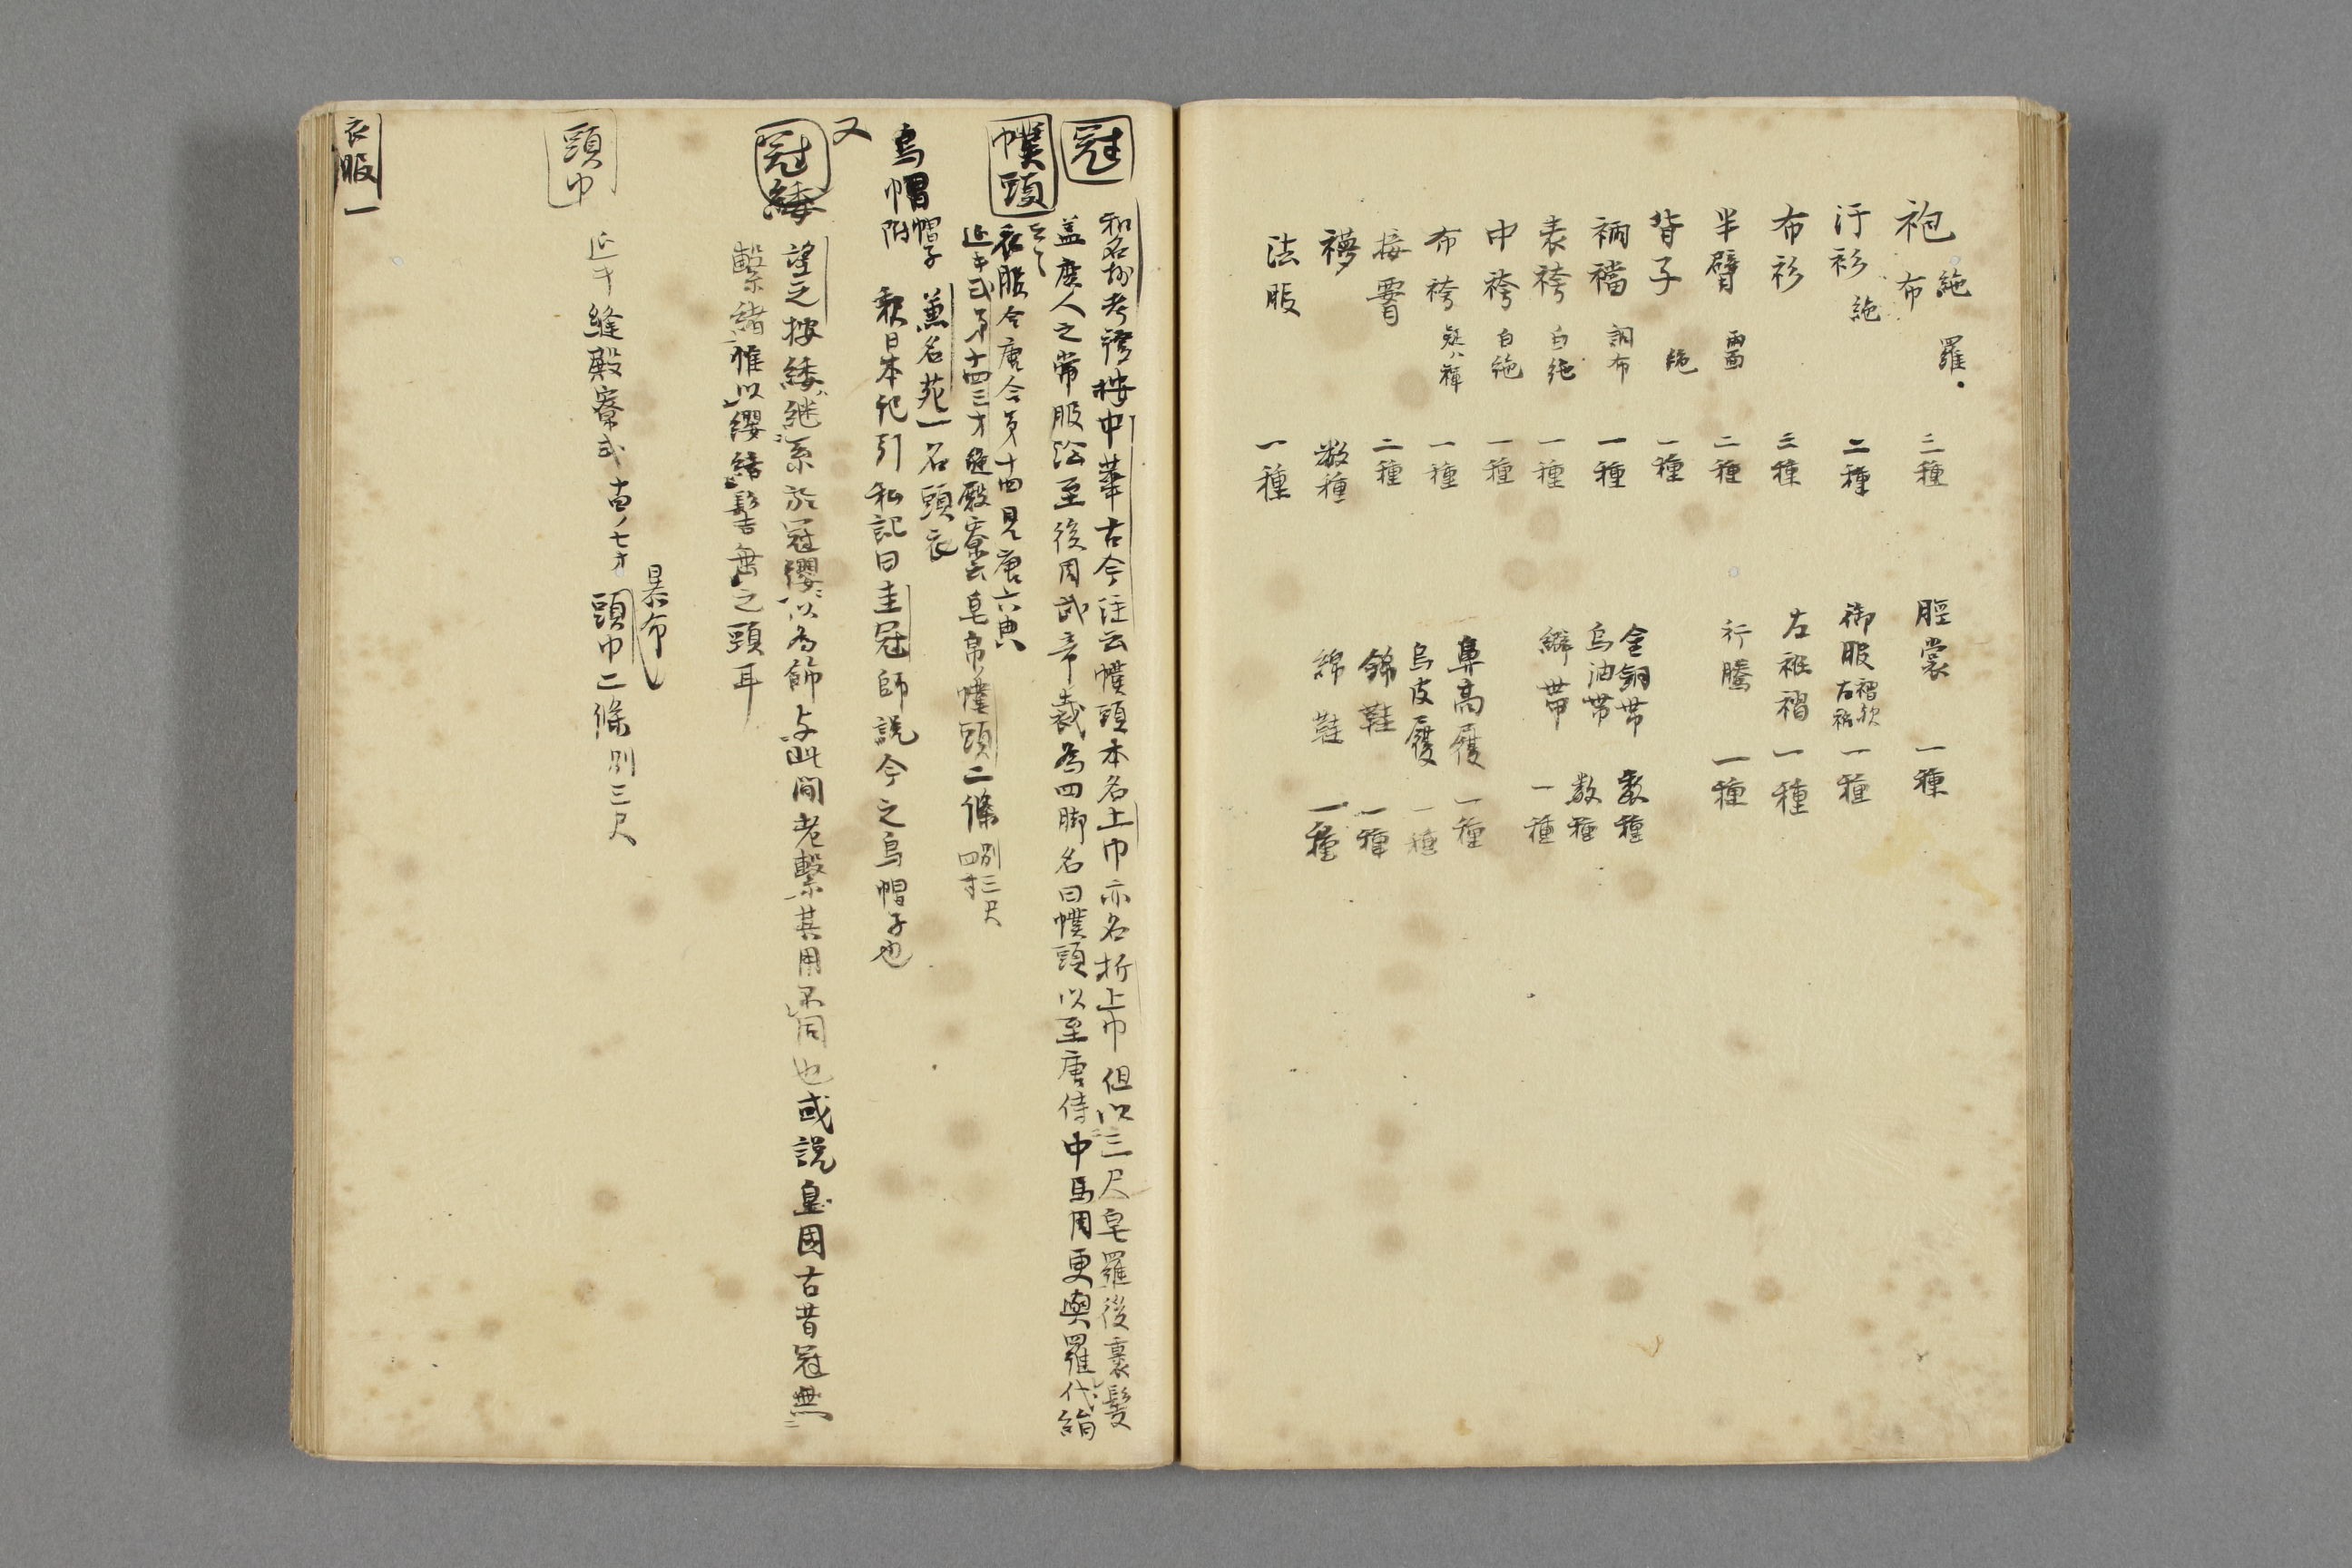 袍 絁 布 羅 三種
汗衫 絁 二種
布衫 三種
半臂 両面 二種
背子 絁 一種
裲襠 調布 一種
表袴 白絁 一種
中袴 白絁 一種
布袴 一種
接 二種
襪 数種
法服 一種
脛裳 一種
御服 一種
左衽褶 一種
行騰 一種
金銅帯 数種
烏油帯 数種
帯 一種
鼻高履 一種
烏皮履 一種
錦鞋 一種
綿鞋 一種
冠
和名抄考證按中華古今注云幞頭本名上巾亦名折上巾但以三尺皂羅後裹髮
盖庶人之常服沿至後周武帝裁為四脚名曰幞頭以至唐侍中馬周更與羅代絹
云々
幞頭
衣服令唐令第十四見唐六典
延喜式第十四縫殿寮云皂帛幞頭二條 別三尺四寸
烏帽 帽子附
兼名苑一名頭衣
釈日本紀引私記曰圭冠師説今之烏帽子也
又
冠緌
望之按緌継系於冠纓以為飾与此間老繫其用不同也或説皇国古昔冠無
繫緒惟以纓結髻無之頸耳
頭巾
延喜縫殿寮式 頭巾二條 別三尺
暴布
衣服一